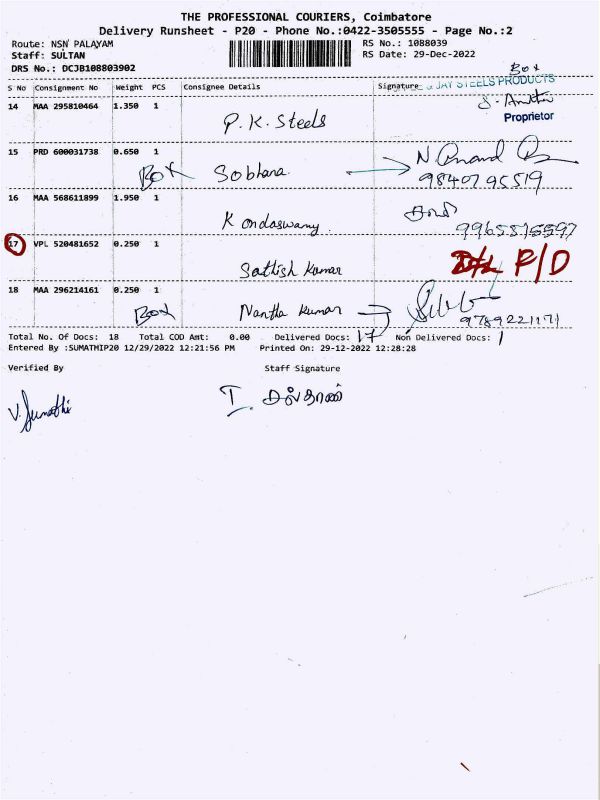 THE PROFESSIONAL COURIERS, Coimbatore
Delivery Runsheet - P20 - Phone No.:0422-3505555 - Page No.:2
Route: NSN PALAYAM RS No.: 1088039
Staff: SULTAN RS Date: 29-Dec-2022
DRS No.: DCJB108803902 Box
S No Consignment No Weight PCS Consignee Details Signature JAY STEELS PRODUCTS
14 MAA 295810464 1.350 1 P.K. Steels
Proprietor
15 PRD 600031738 0.650 1 BOX Sobhana N Anand
9840795519
16 MAA 568611899 1.950 1 Kondaswamy
9965815597
17 VPL 520481652 0.250 1 Sattish Kumar P/D
18 MAA 296214161 0.250 1 BOX Nantha Kumar
9789221171
Total No. Of Docs: 18 Total COD Amt: 0.00 Delivered Docs: 17 Non Delivered Docs: 1
Entered By :SUMATHIP20 12/29/2022 12:21:56 PM Printed On: 29-12-2022 12:28:28
Verified By Staff Signature
V. Sumathi I. சுல்தான்